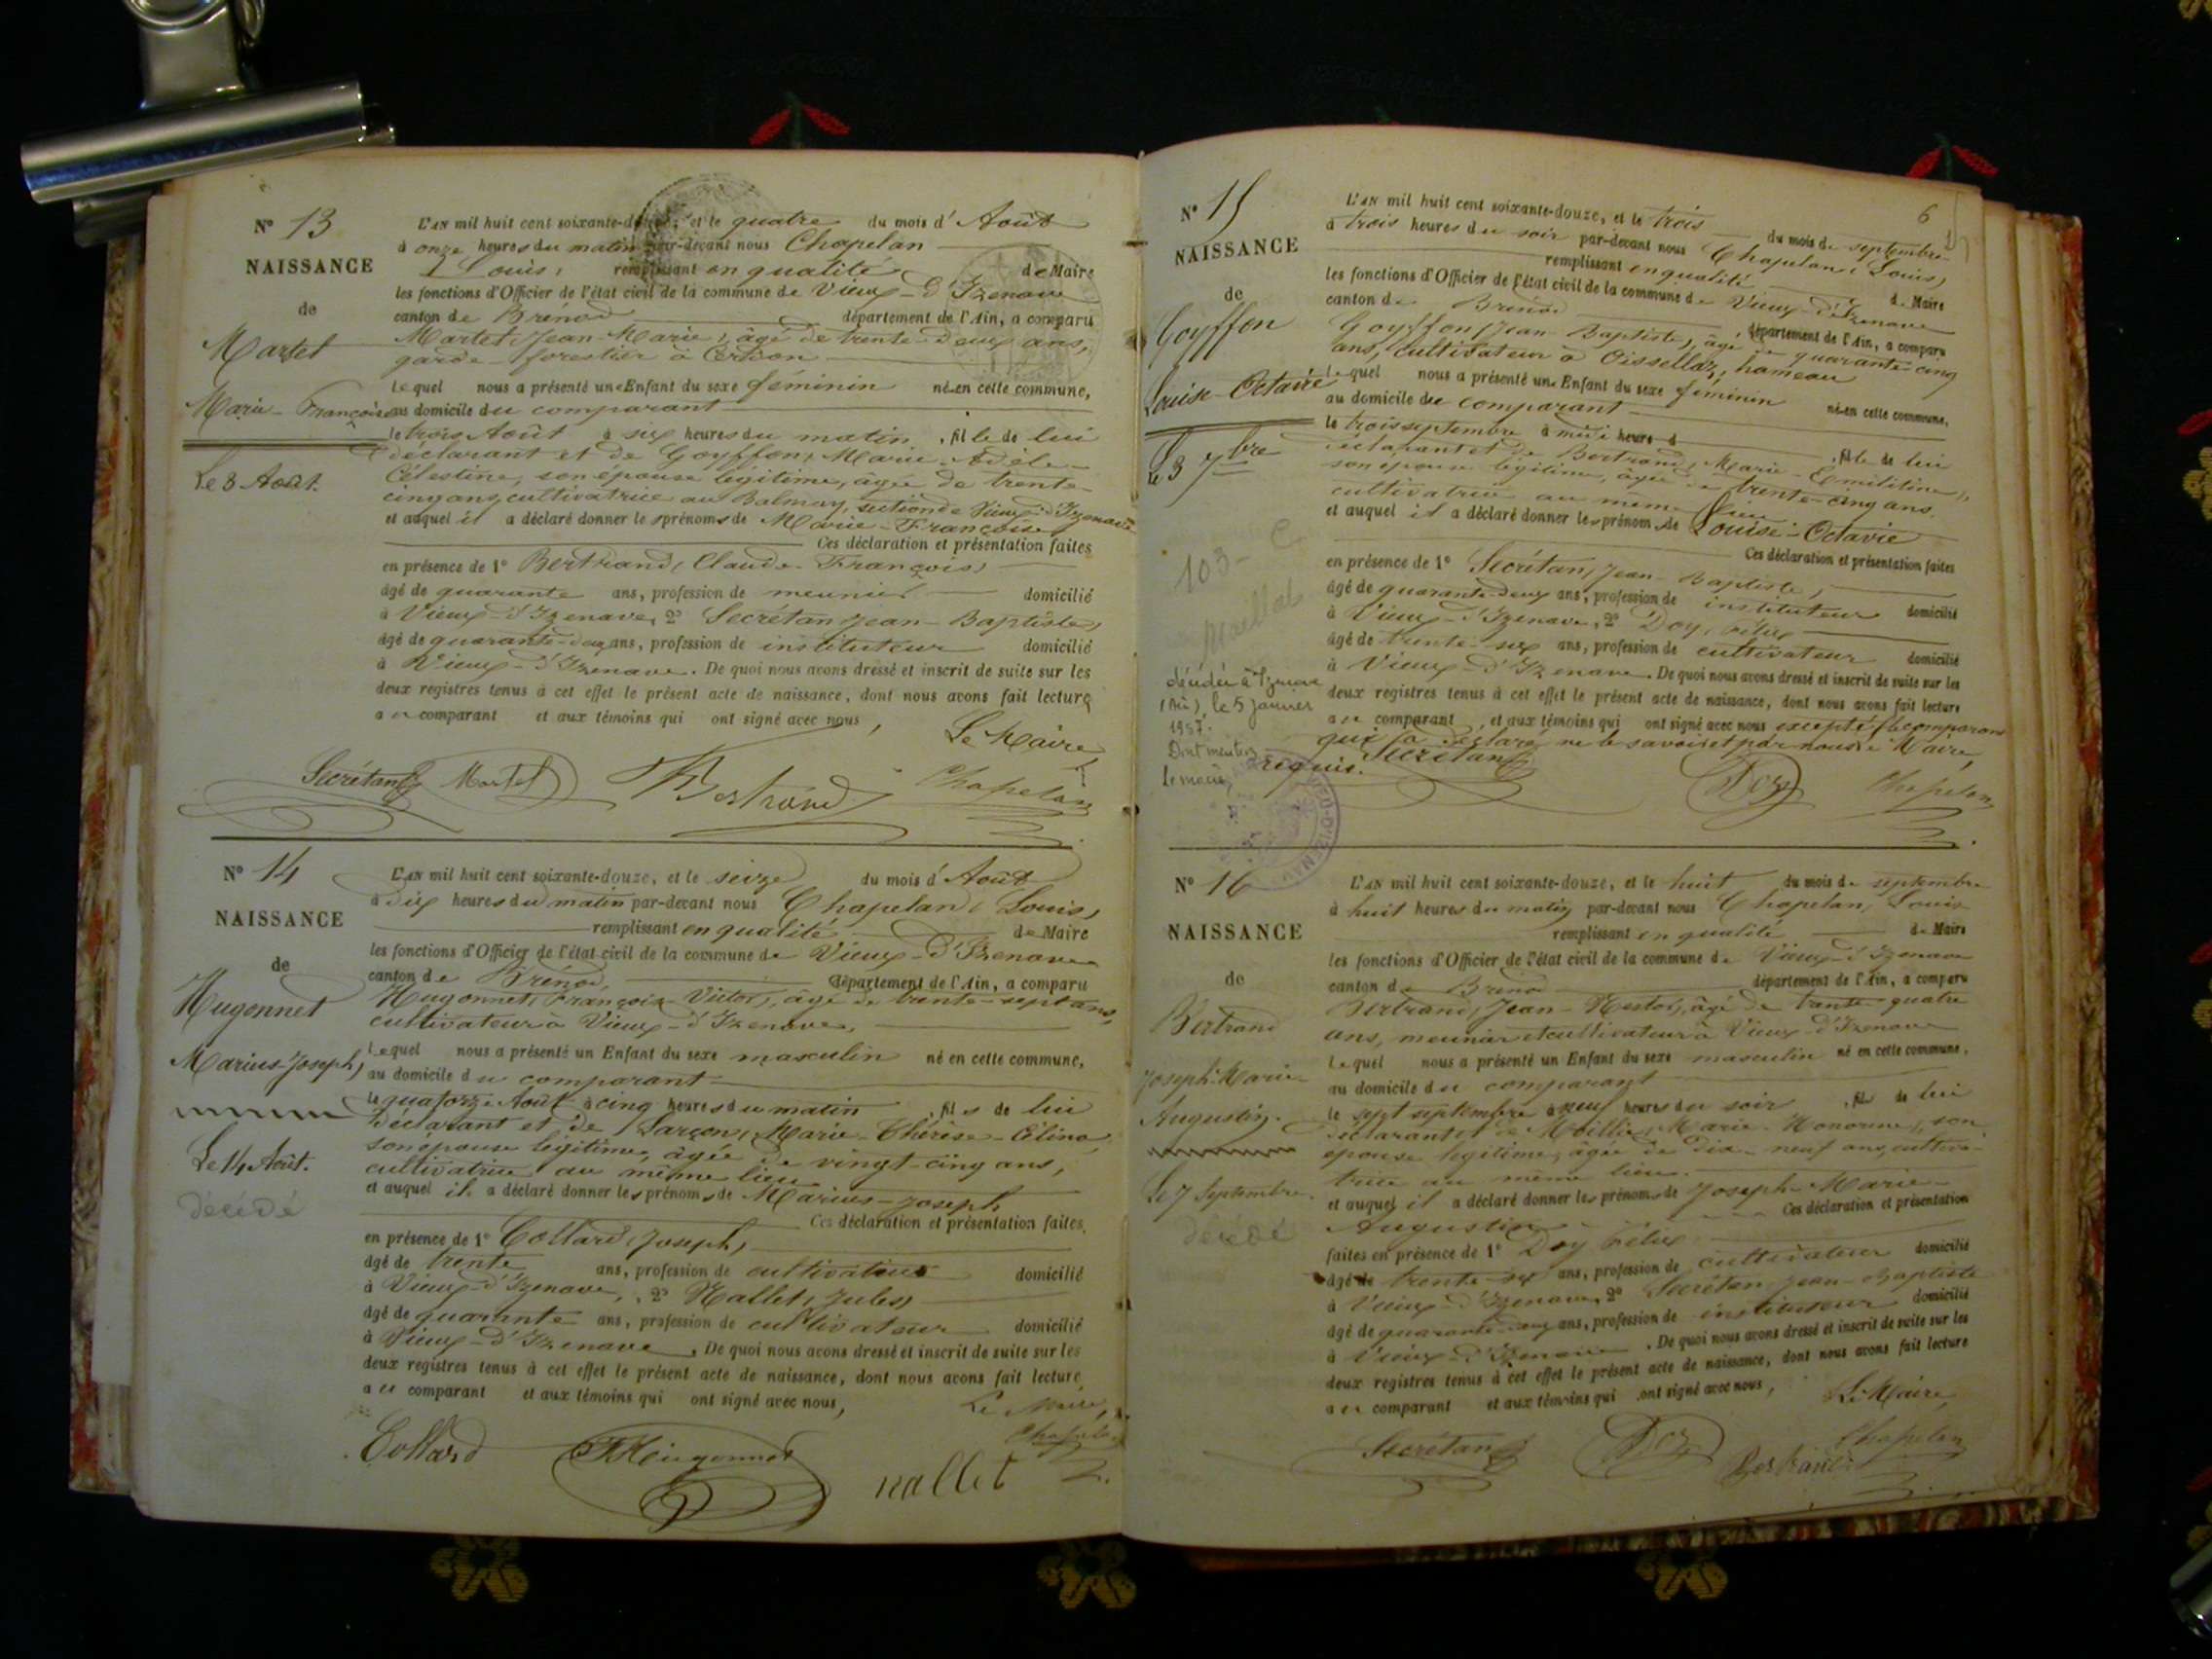 N° 13
NAISSANCE
de
Martet
Marie-Françoise
Le 3 Août.
L'AN mil huit cent soixante-douze, et le quatre du mois d'Août
à onze heures du matin par-devant nous Chapelan
Louis, remplissant en qualité de Maire
les fonctions d'Officier de l'état civil de la commune de Vieux-d'Izenave
canton de Brénod département de l'Ain, a comparu
Martet, Jean-Marie, âgé de trente-deux ans,
garde-forestier à Cerdon
lequel nous a présenté une Enfant du sexe féminin née en cette commune,
au domicile du comparant
le trois Août à six heures du matin, fille de lui
déclarant et de Goyffon, Marie-Adèle-
Célestine, son épouse légitime, âgée de trente-
cinq ans, cultivatrice au Balmay, section de Vieux-d'Izenave
et auquel il a déclaré donner les prénoms de Marie-Françoise
Ces déclaration et présentation faites
en présence de 1° Bertrand, Claude-François,
âgé de quarante ans, profession de meunier domicilié
à Vieux-d'Izenave, 2° Secrétan Jean-Baptiste,
âgé de quarante-deux ans, profession de instituteur domicilié
à Vieux-d'Izenave. De quoi nous avons dressé et inscrit de suite sur les
deux registres tenus à cet effet le présent acte de naissance, dont nous avons fait lecture
au comparant et aux témoins qui ont signé avec nous,
Le Maire,
Secrétan Martet Bertrand Chapelan
N° 14
NAISSANCE
de
Hugonnet
Marius-Joseph,
Le 14 Août.
décédé
L'AN mil huit cent soixante-douze, et le seize du mois d'Août
à dix heures du matin par-devant nous Chapelan, Louis,
remplissant en qualité de Maire
les fonctions d'Officier de l'état civil de la commune de Vieux-d'Izenave
canton de Brénod, département de l'Ain, a comparu
Hugonnet, François-Victor, âgé de trente-sept ans,
cultivateur à Vieux-d'Izenave,
lequel nous a présenté un Enfant du sexe masculin né en cette commune,
au domicile du comparant
le quatorze Août à cinq heures du matin, fils de lui
déclarant et de Larçon, Marie-Thérèse-Célina,
son épouse légitime, âgée de vingt-cinq ans,
cultivatrice au même lieu
et auquel il a déclaré donner les prénoms de Marius-Joseph
Ces déclaration et présentation faites
en présence de 1° Collard, Joseph,
âgé de trente ans, profession de cultivateur domicilié
à Vieux-d'Izenave, 2° Nallet, Jules,
âgé de quarante ans, profession de cultivateur domicilié
à Vieux-d'Izenave. De quoi nous avons dressé et inscrit de suite sur les
deux registres tenus à cet effet le présent acte de naissance, dont nous avons fait lecture
au comparant et aux témoins qui ont signé avec nous,
Le Maire,
Collard Hugonnet nallet Chapelan
6
N° 15
NAISSANCE
de
Goyffon
Louise-Octavie
Le 3 7bre
103-
Maillat
décédée à Izenave
(Ain), le 5 janvier
1957.
Dont mention
Le maire,
L'AN mil huit cent soixante-douze, et le trois du mois de septembre
à trois heures du soir par-devant nous Chapelan, Louis,
remplissant en qualité de Maire
les fonctions d'Officier de l'état civil de la commune de Vieux-d'Izenave
canton de Brénod, département de l'Ain, a comparu
Goyffon, Jean-Baptiste, âgé de quarante-cinq
ans, cultivateur à Oissellaz, hameau
lequel nous a présenté une Enfant du sexe féminin née en cette commune,
au domicile du comparant
le trois septembre à midi heure, fille de lui
déclarant et de Bertrand, Marie-Emilitine,
son épouse légitime, âgée de trente-cinq ans,
cultivatrice au même lieu
et auquel il a déclaré donner les prénoms de Louise-Octavie
Ces déclaration et présentation faites
en présence de 1° Secrétan, Jean-Baptiste,
âgé de quarante-deux ans, profession de instituteur domicilié
à Vieux-d'Izenave, 2° Doy, Félix
âgé de trente-six ans, profession de cultivateur domicilié
à Vieux-d'Izenave. De quoi nous avons dressé et inscrit de suite sur les
deux registres tenus à cet effet le présent acte de naissance, dont nous avons fait lecture
au comparant, et aux témoins qui ont signé avec nous excepté le comparant
qui a déclaré ne le savoir et par nous le Maire,
requis.
Secrétan Doy Chapelan
N° 16
NAISSANCE
de
Bertrand
Joseph-Marie-
Augustin.
Le 7 Septembre.
décédé
L'AN mil huit cent soixante-douze, et le huit du mois de septembre
à huit heures du matin par-devant nous Chapelan, Louis
remplissant en qualité de Maire
les fonctions d'Officier de l'état civil de la commune de Vieux-d'Izenave
canton de Brénod département de l'Ain, a comparu
Bertrand, Jean-Nestor, âgé de trente-quatre
ans, meunier et cultivateur à Vieux-d'Izenave
lequel nous a présenté un Enfant du sexe masculin né en cette commune,
au domicile du comparant
le sept septembre à neuf heures du soir, fils de lui
déclarant et de Moillie, Marie-Honorine, son
épouse légitime, âgée de dix-neuf ans, cultiva-
trice au même lieu.
et auquel il a déclaré donner les prénoms de Joseph-Marie-
Augustin Ces déclaration et présentation
faites en présence de 1° Doy Félix
âgé de trente-six ans, profession de cultivateur domicilié
à Vieux-d'Izenave, 2° Secrétan, Jean-Baptiste
âgé de quarante-deux ans, profession de instituteur domicilié
à Vieux-d'Izenave. De quoi nous avons dressé et inscrit de suite sur les
deux registres tenus à cet effet le présent acte de naissance, dont nous avons fait lecture
au comparant et aux témoins qui ont signé avec nous,
Le Maire,
Secrétan Doy Bertrand Chapelan